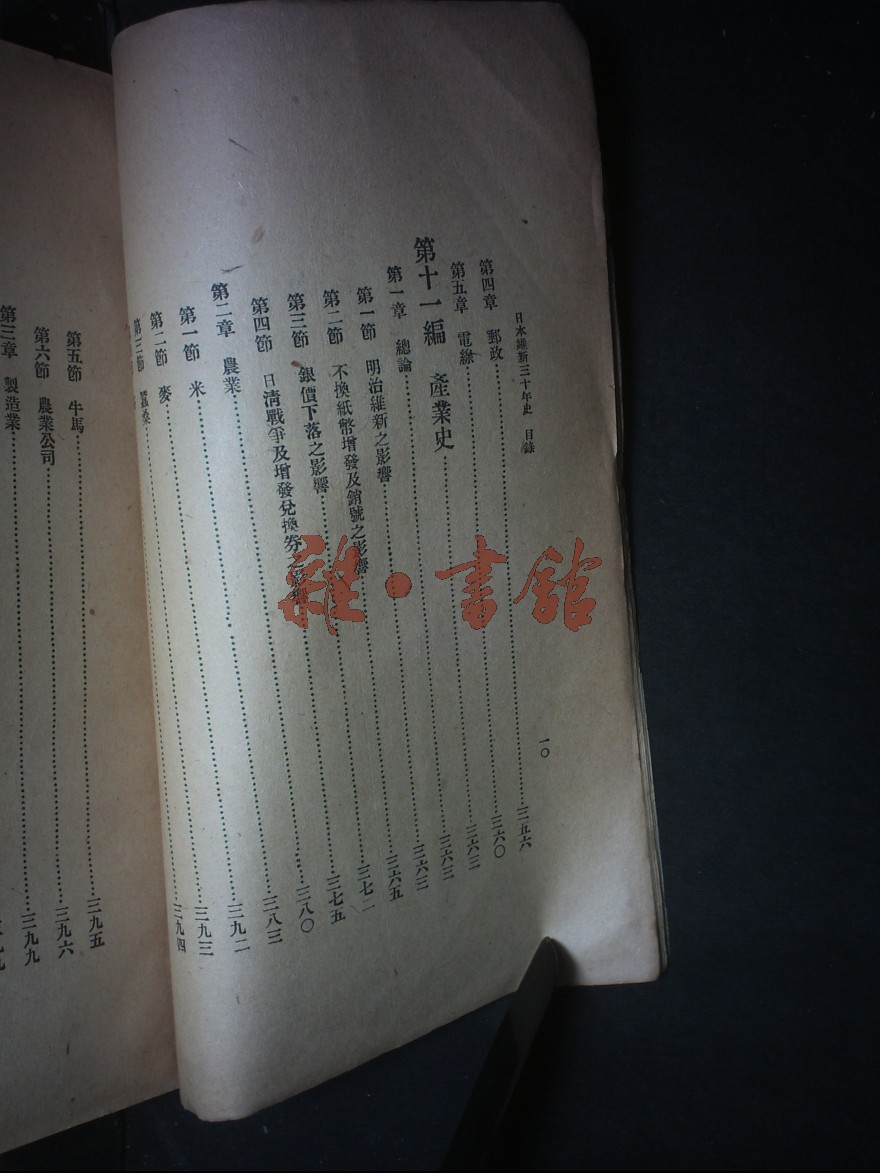 日本維新三十年史 目錄 一〇
第四章 郵政……三五六
第五章 電線……三六〇
第十一編 產業史……三六三
第一章 總論……三六三
第一節 明治維新之影響……三六三
第二節 不換紙幣增發及銷號之影響……三六五
第三節 銀價下落之影響……三七二
第四節 日清戰爭及增發兌換券之影響……三七五
第二章 農業……三八〇
第一節 米……三八三
第二節 麥……三九二
第三節 蠶桑……三九三
三九四
第五節 牛馬……三九五
第六節 農業公司……三九六
第三章 製造業……三九九
雜·書館